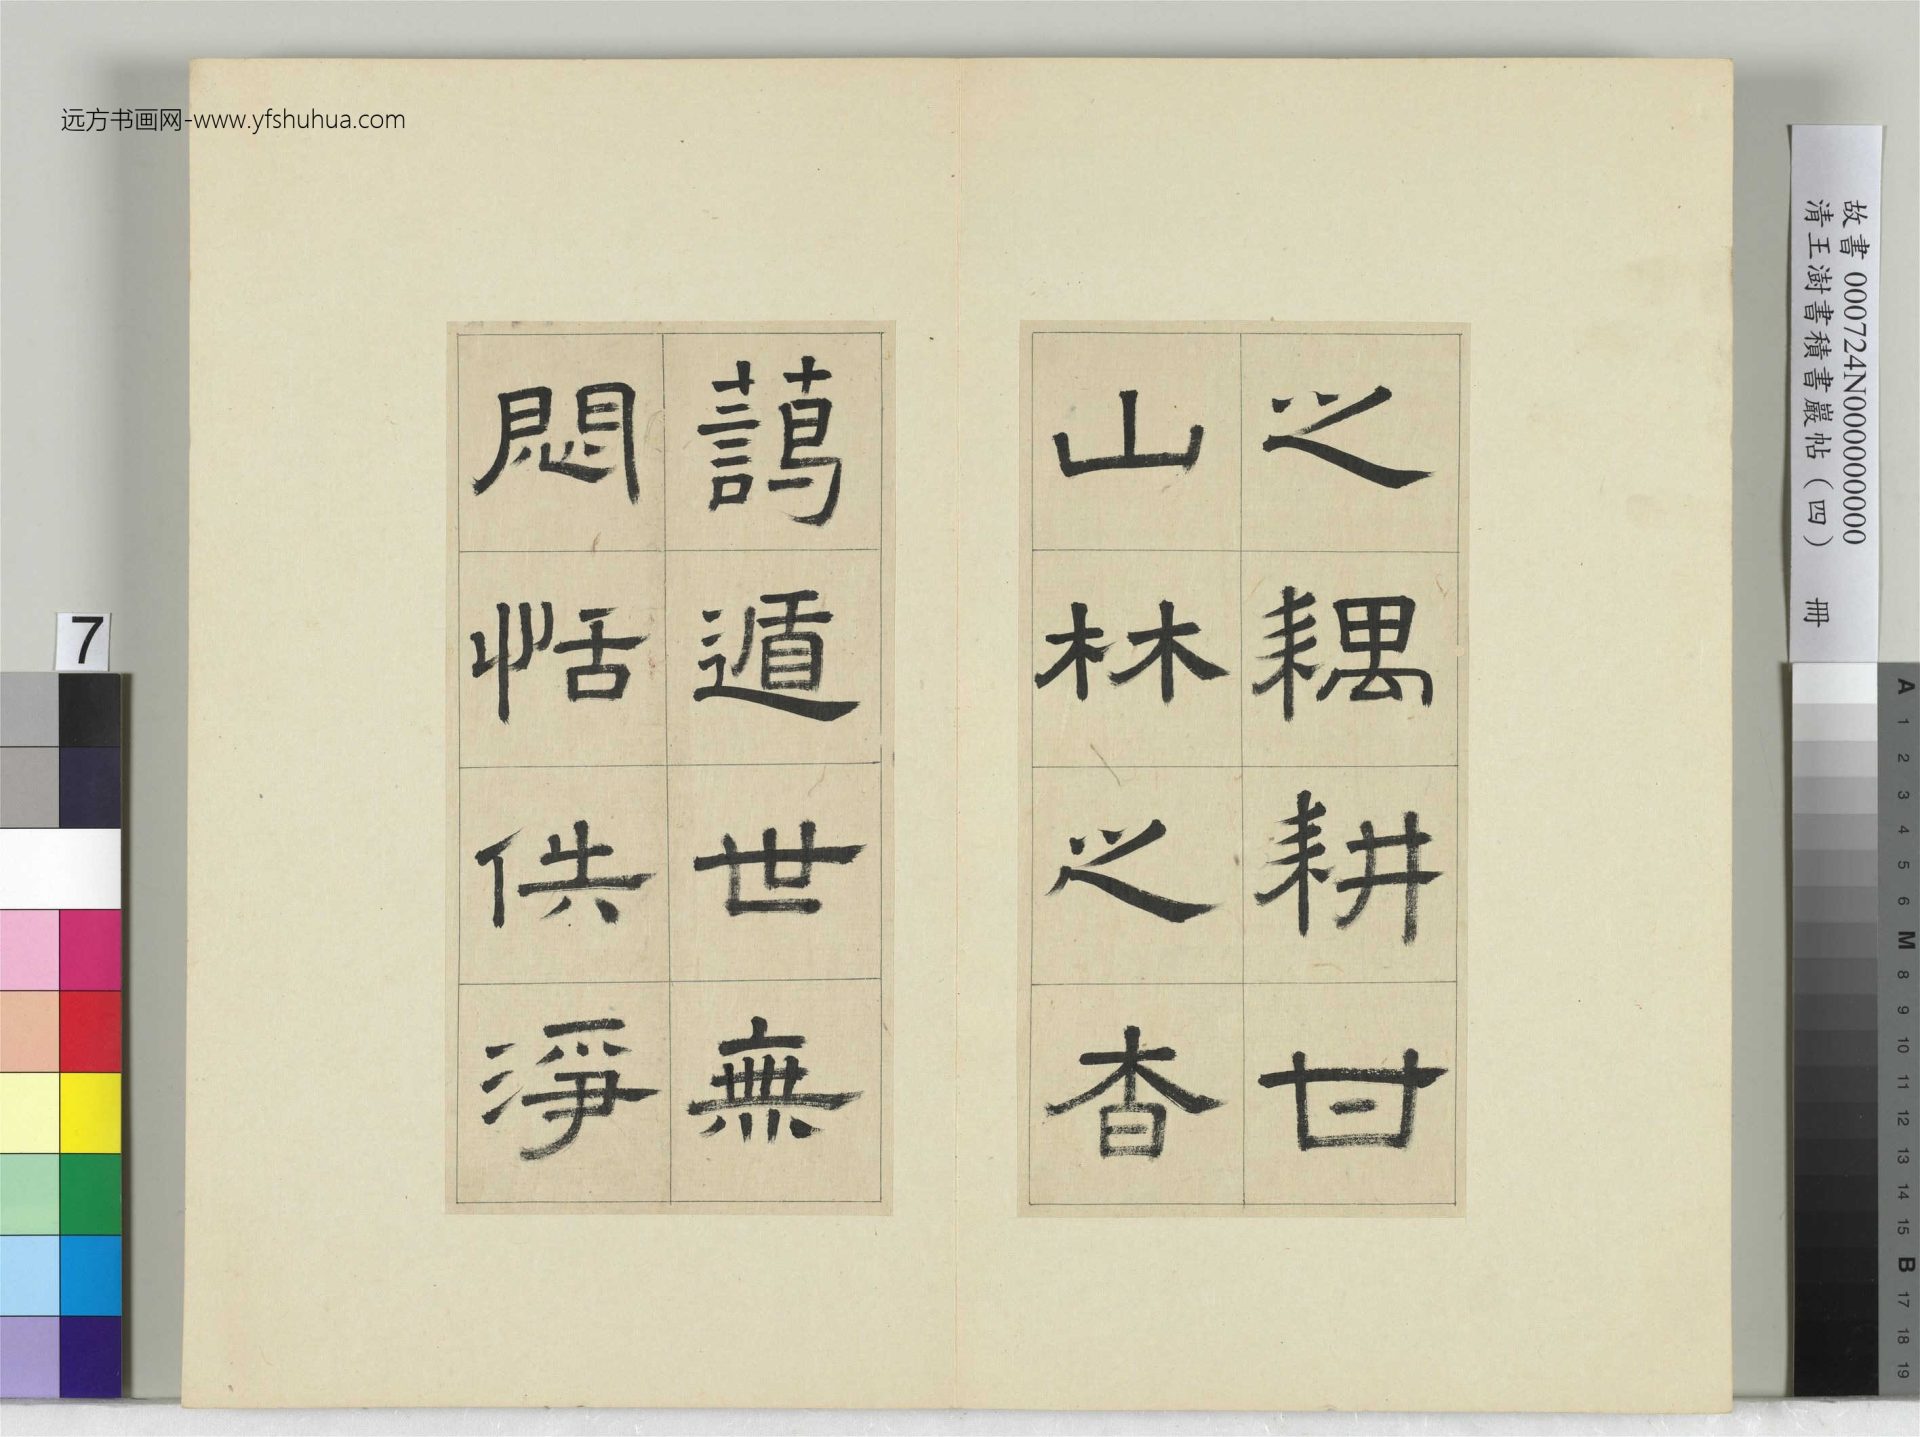 远方书画网-www.yfshuhua.com
故書 000724N000000000
清王澍書積書巖帖（四） 冊
之耦耕甘
山林之杳
藹遁世無
悶恬佚淨
7
A
1
2
3
4
5
6
M
8
9
10
11
12
13
14
15
B
17
18
19